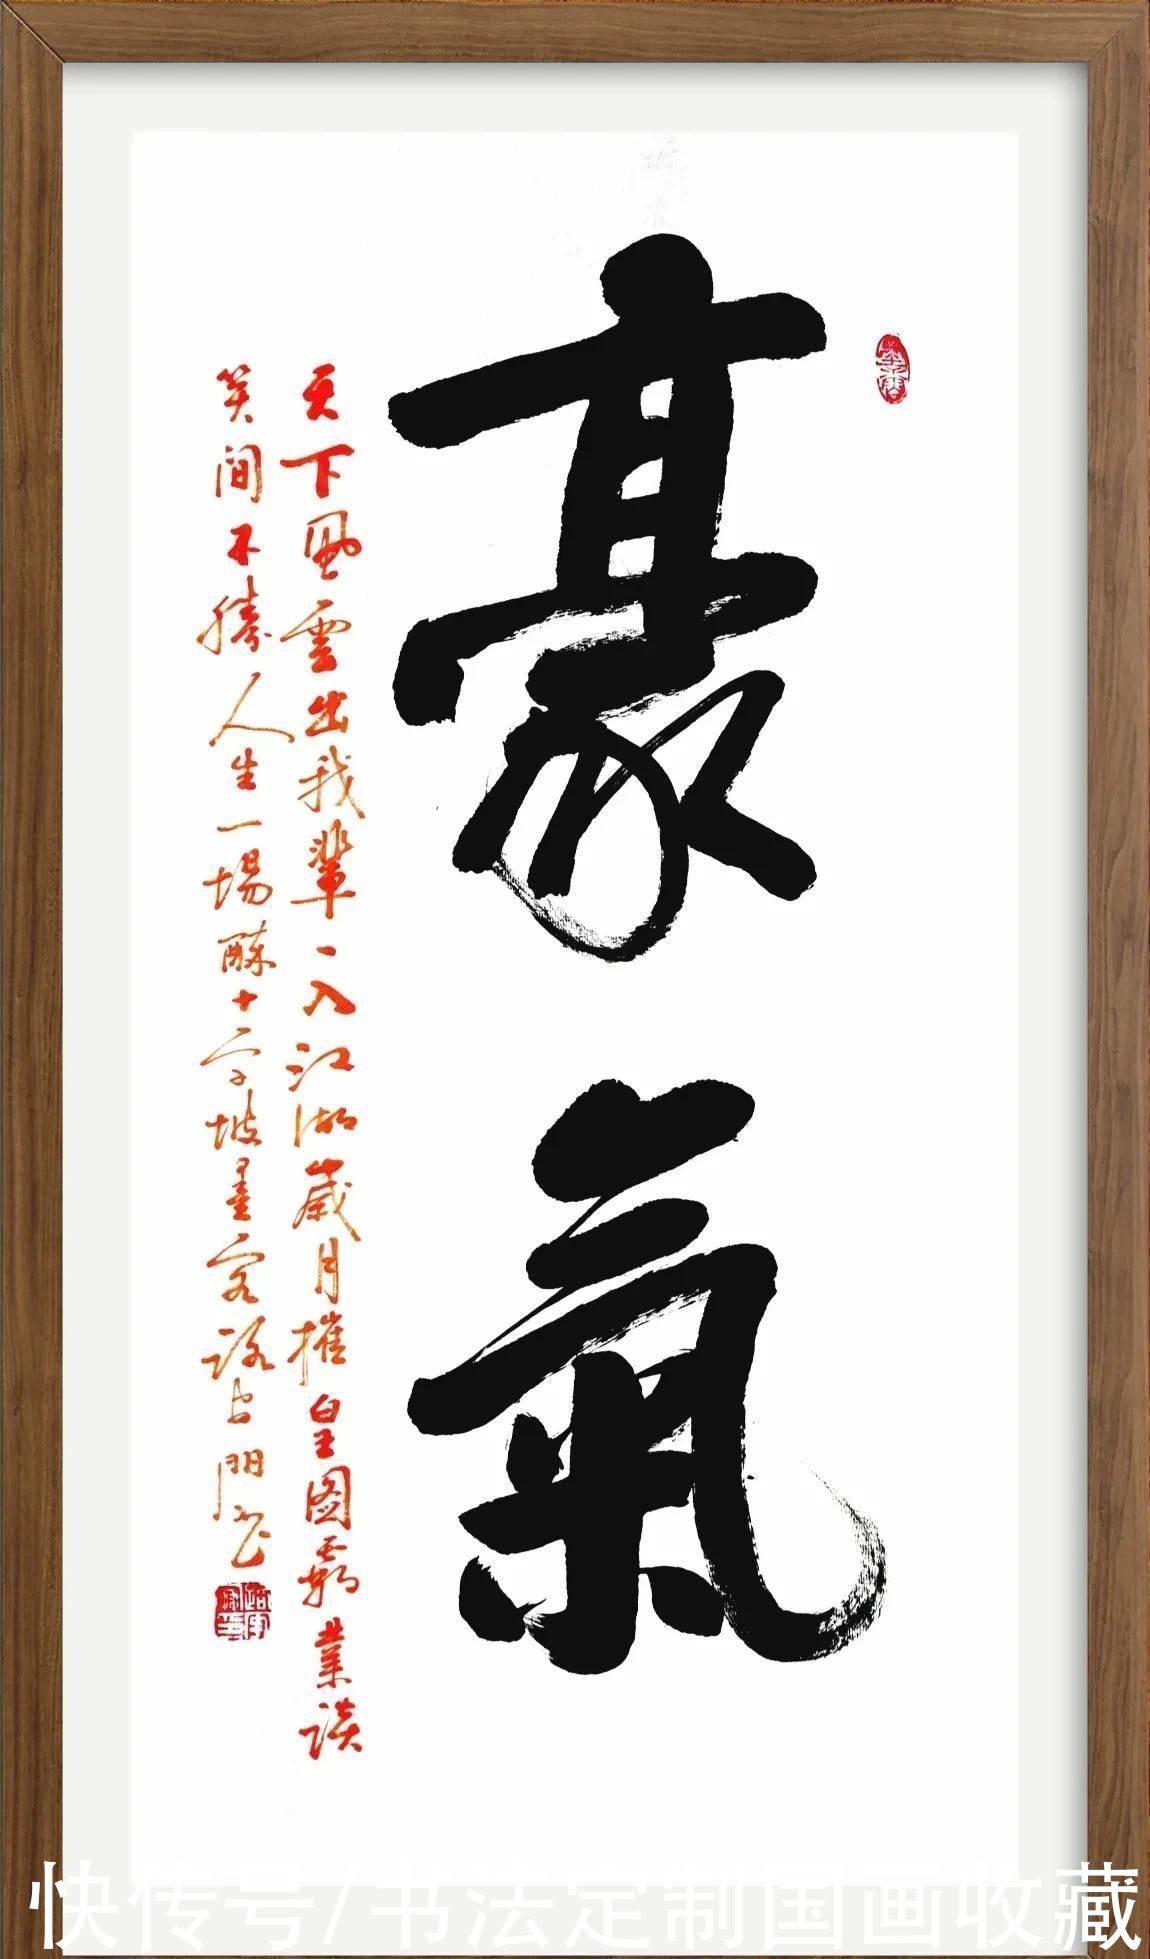 豪氣
天下風雲出我輩一入江湖歲月摧皇图霸業談
笑间不勝人生一場醉十字坡墨客門書
快传号/书法定制国画收藏